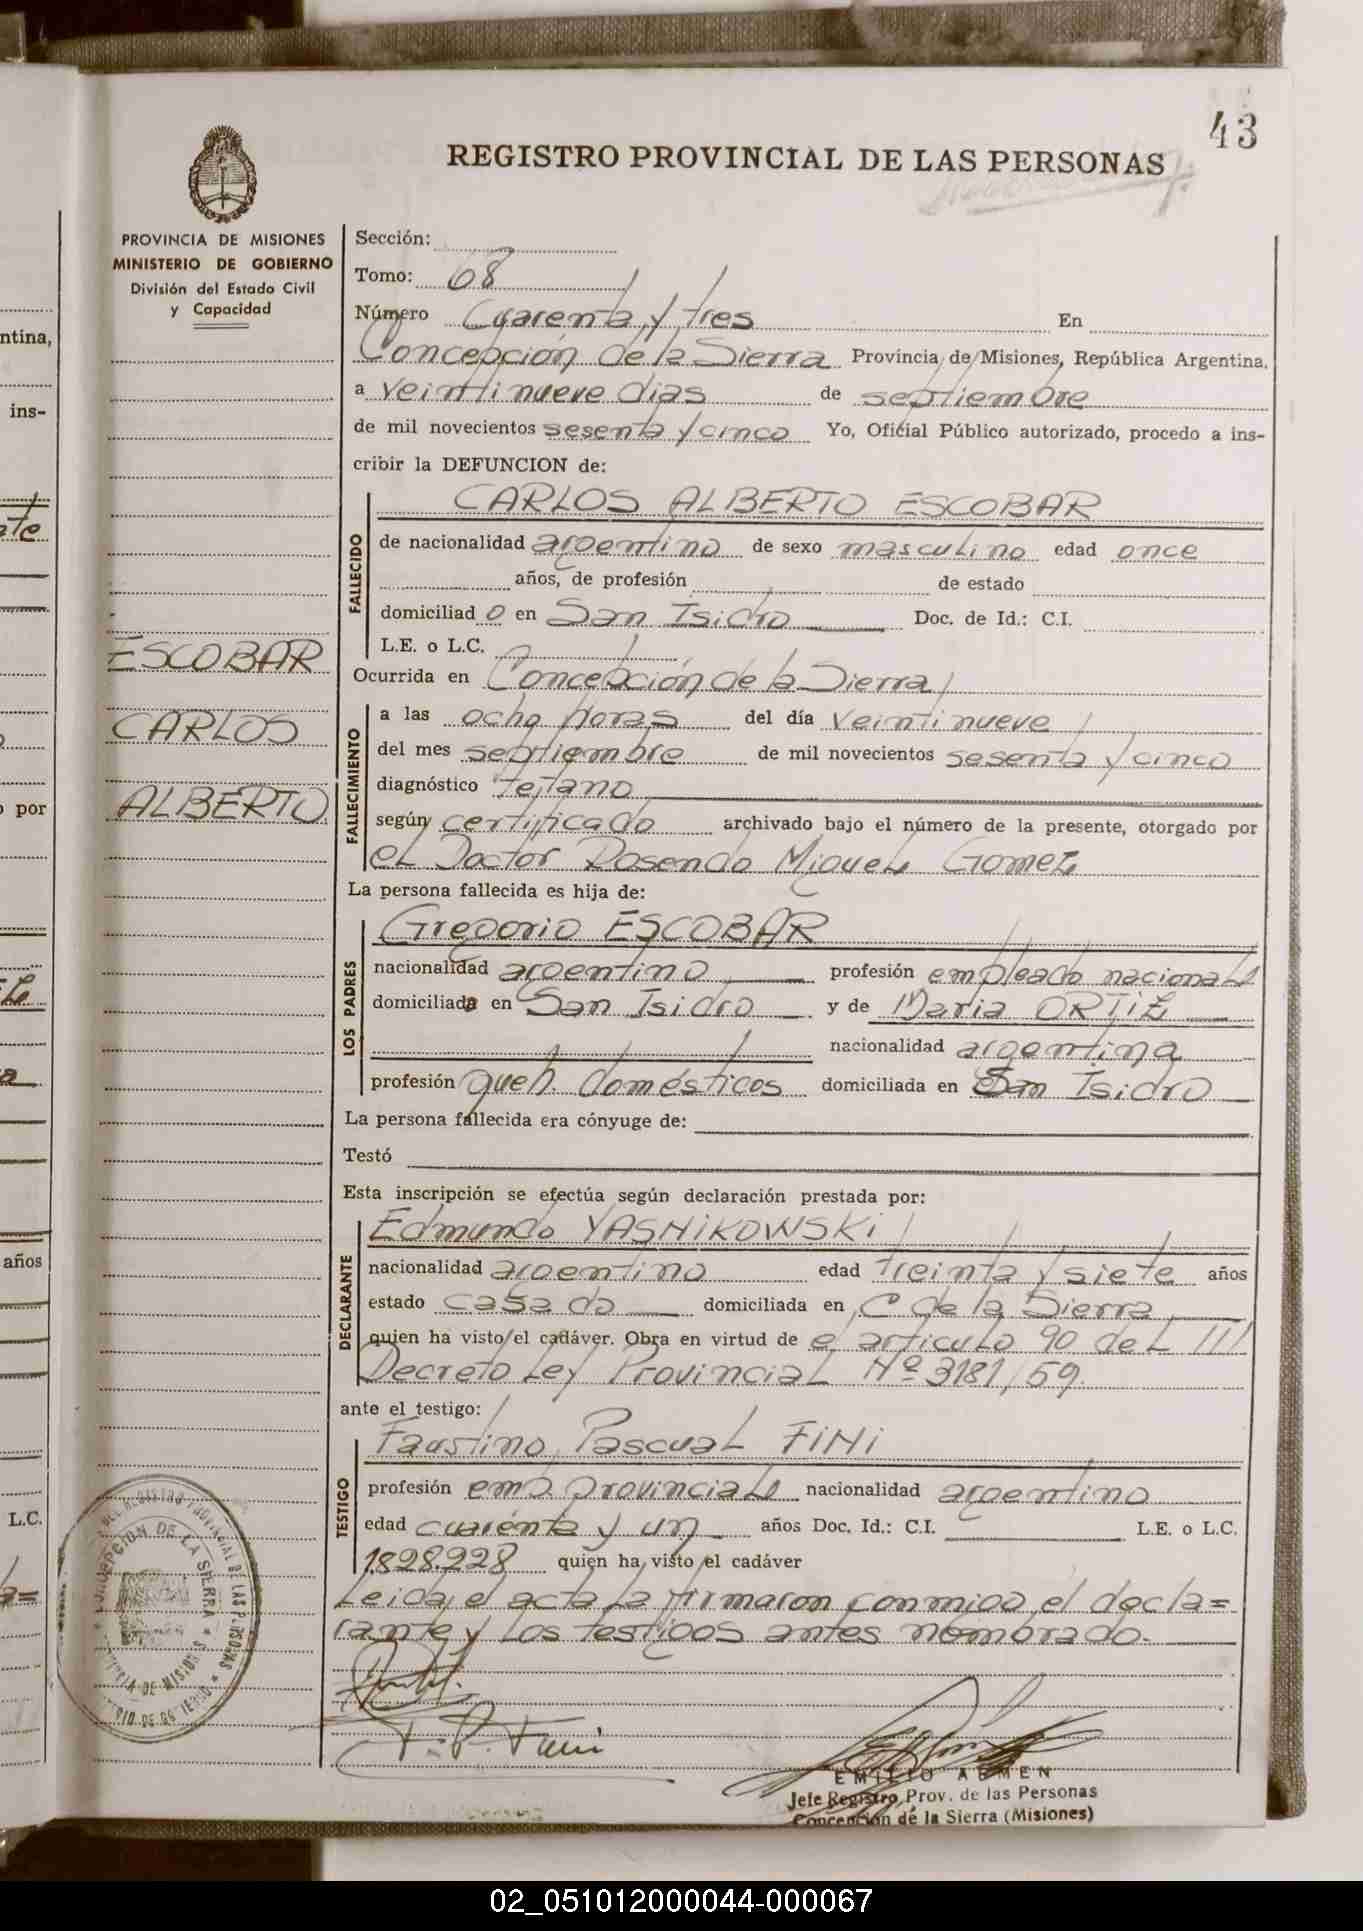 43
REGISTRO PROVINCIAL DE LAS PERSONAS
PROVINCIA DE MISIONES
MINISTERIO DE GOBIERNO
División del Estado Civil
y Capacidad
Sección:
Tomo: 68
Número Cuarenta y tres En
Concepción de la Sierra Provincia de Misiones, República Argentina,
a veintinueve dias de septiembre
de mil novecientos sesenta y cinco Yo, Oficial Público autorizado, procedo a ins-
cribir la DEFUNCION de:
CARLOS ALBERTO ESCOBAR
FALLECIDO
de nacionalidad argentino de sexo masculino edad once
años, de profesión de estado
domiciliado en San Isidro Doc. de Id.: C.I.
L.E. o L.C.
ESCOBAR
CARLOS
ALBERTO
Ocurrida en Concepción de la Sierra
FALLECIMIENTO
a las ocho horas del día veintinueve
del mes septiembre de mil novecientos sesenta y cinco
diagnóstico tejtano
según certificado archivado bajo el número de la presente, otorgado por
el Doctor Rosendo Miguel Gomez
La persona fallecida es hija de:
LOS PADRES
Gregorio ESCOBAR
nacionalidad argentino profesión empleado nacional
domiciliada en San Isidro y de Maria ORTIZ
nacionalidad argentina
profesión queh. domésticos domiciliada en San Isidro
La persona fallecida era cónyuge de:
Testó
Esta inscripción se efectúa según declaración prestada por:
DECLARANTE
Edmundo YASNIKOWSKI
nacionalidad argentino edad treinta y siete años
estado casado domiciliada en C de la Sierra
quien ha visto el cadáver. Obra en virtud de el articulo 90 del ///
Decreto Ley Provincial Nº 3181/59.
ante el testigo:
TESTIGO
Faustino Pascual FINI
profesión emp. provincial nacionalidad argentino
edad cuarenta y un años Doc. Id.: C.I. L.E. o L.C.
1.828.228 quien ha visto el cadáver
Leida el acta la firmaron conmigo el decla=
rante y los testigos antes nombrado.
F. P. Fini
EMILIO AEMEN
Jefe Registro Prov. de las Personas
Concepción de la Sierra (Misiones)
CONCEPCION DE LA SIERRA
ntina,
ins-
por
años
L.C.
02_051012000044-000067